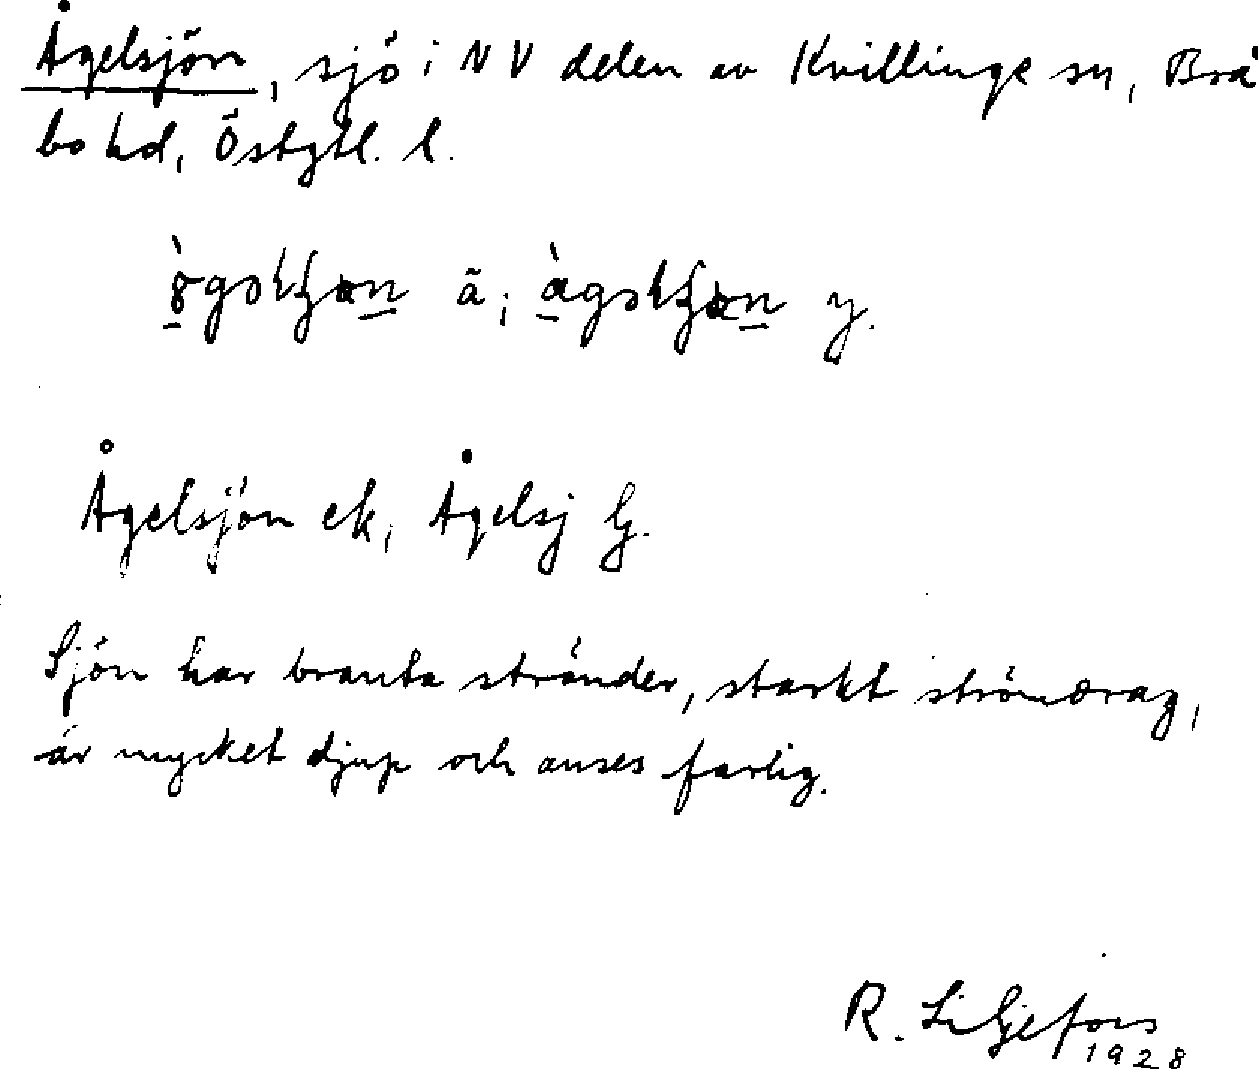 Ågelsjön, sjö i NV delen av Kvillinge sn, Brå
bo hd, Östgtl. l.
ä; y.
Ågelsjön ek, Ågelsj G.
Sjön har branta stränder, starkt strömdrag,
är mycket djup och anses farlig.
R. Liljefors
1928